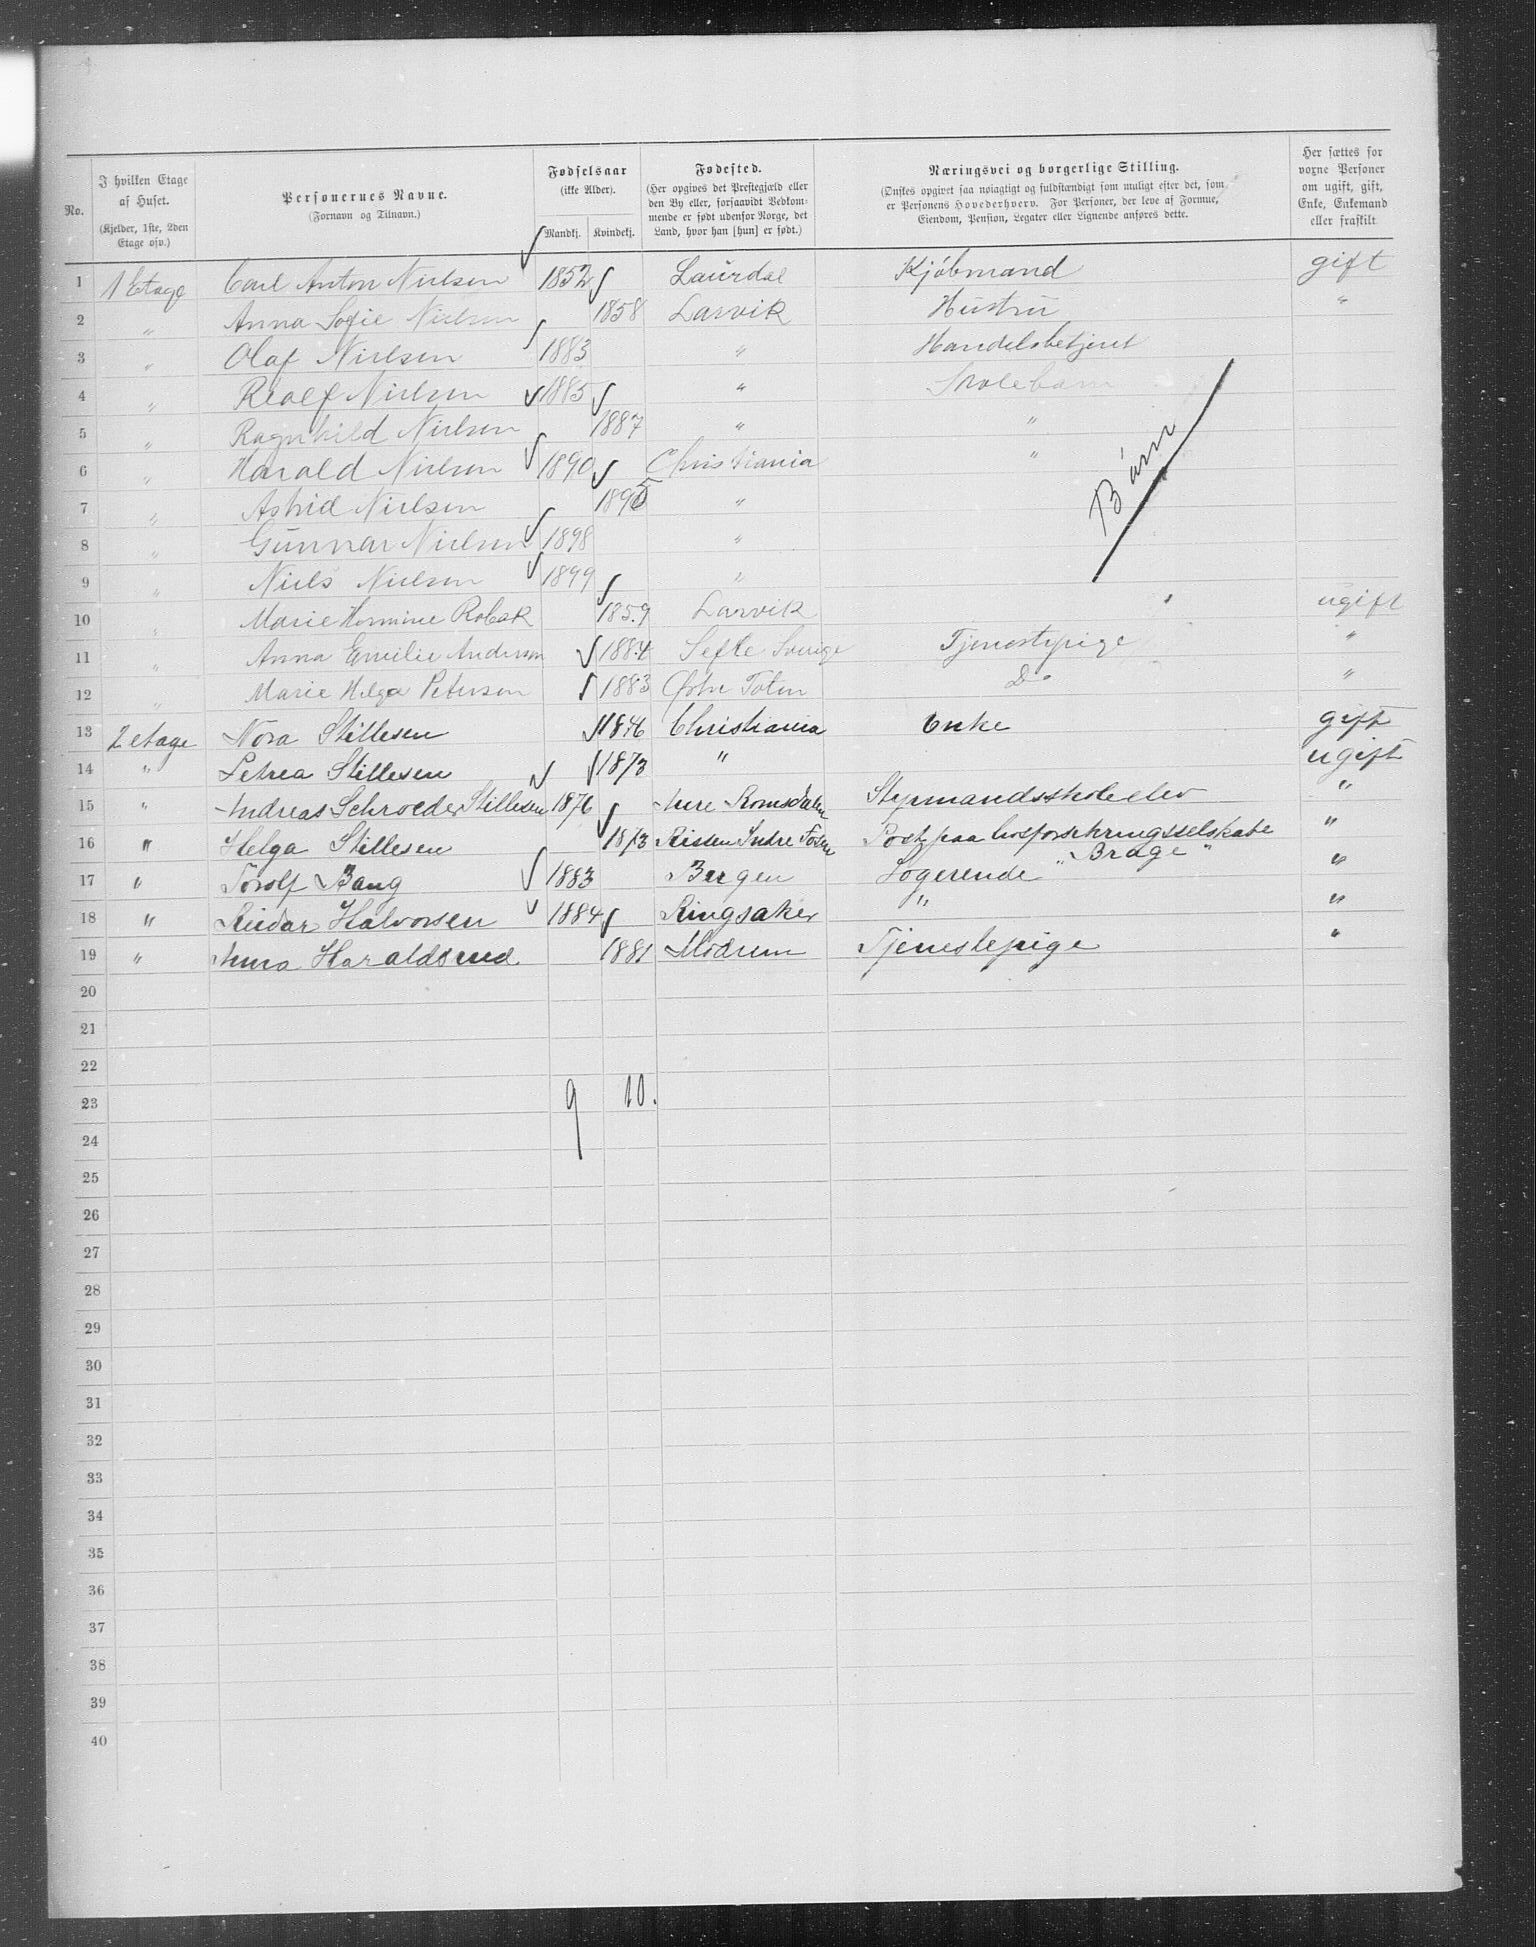 No.
I hvilken Etage af Huset.
(Kjelder, 1ste, 2den Etage osv.)
Personernes Navne.
(Fornavn og Tilnavn.)
Fødselsaar
(ikke Alder).
Mandkj. Kvindekj.
Fødested.
(Her opgives det Prestegjæld eller den By eller, forsaavidt Vedkommende er født udenfor Norge, det Land, hvor han [hun] er født.)
Næringsvei og borgerlige Stilling.
(Ønskes opgivet saa nøiagtigt og fuldstændigt som muligt efter det, som er Personens Hovederhverv. For Personer, der leve af Formue, Eiendom, Pension, Legater eller Lignende anføres dette.
Her sættes for voxne Personer om ugift, gift, Enke, Enkemand eller fraskilt
1 1 Etage Carl Anton Nielsen 1852 Laurdal Kjøbmand gift
2 " Anna Sofie Nielsen 1858 Larvik Hustru "
3 " Olaf Nielsen 1883 " Handelsbetjent
4 " Realf Nielsen 1885 " Skolebarn
5 " Ragnhild Nielsen 1887 " "
6 " Harald Nielsen 1890 Christiania "
7 " Astrid Nielsen 1895 "
8 " Gunnar Nielsen 1898 "
9 " Niels Nielsen 1899 "
Børn
10 " Marie Hermine 1859 Larvik ugift
11 " Anna Emilie Anderson 1884 Sefle Sverige Tjenestepige "
12 " Marie Helga Petersen 1883 Østre Toten Do "
13 2 etage Nora Stillesen 1846 Christiania Enke gift
14 " Petrea Stillesen 1873 " ugift
15 " Andreas Schroeder Stillesen 1876 Aure Romsdalen Styrmandsskoleelev "
16 " Helga Stillesen 1873 Rissen Indre Fosen Post paa livsforsikringsselskabe "
"Brage"
17 " Torolf Bang 1883 Bergen Logerende "
18 " Reidar Halvorsen 1884 Ringsaker " "
19 " Anna Haraldsrud 1881 Modum Tjenestepige "
20
21
22
23 9 10.
24
25
26
27
28
29
30
31
32
33
34
35
36
37
38
39
40